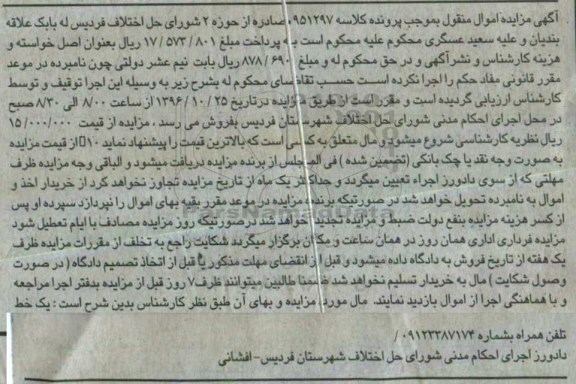 آگهی مزایده اموال منقول بموجب پرونده کلاسه ۹۵۱۲۹۷ صادره از حوزه ۲ شورای حل اختلاف فردیس له بابک علاقه
بندیان و علیه سعید عسگری محکوم علیه محکوم است به پرداخت مبلغ ۱۷/۵۷۳/۸۰۱ ریال بعنوان اصل خواسته و
هزینه کارشناس و نشر آگهی و در حق محکوم له و مبلغ ۸۷۸/۶۹۰ ریال بابت نیم عشر دولتی چون نامبرده در موعد
مقرر قانونی مفاد حکم را اجرا نکرده است حسب تقاضای محکوم له بشرح زیر به وسیله این اجرا توقیف و توسط
کارشناس ارزیابی گردیده است و مقرر است از طریق مزایده درتاریخ ۱۳۹۶/۱۰/۲۵ از ساعت ۸/۰۰ الی ۸/۳۰ صبح
در محل اجرای احکام مدنی شورای حل اختلاف شهرستان فردیس بفروش می رسد ، مزایده از قیمت ۱۵/۰۰۰/۰۰۰
ریال نظریه کارشناسی شروع میشود و مال متعلق به کسی است که بالاترین قیمت را پیشنهاد نماید ۱۰٪ از قیمت مزایده
به صورت وجه نقد یا چک بانکی (تضمین شده ) فی المجلس از برنده مزایده دریافت میشود و الباقی وجه مزایده ظرف
مهلتی که از سوی دادورز اجراء تعیین میگردد و حداکثر یک ماه از تاریخ مزایده تجاوز نخواهد کرد از خریدار اخذ و
اموال به نامبرده تحویل خواهد شد در صورتیکه برنده مزایده در موعد مقرر بقیه بهای اموال را نپردازد سپرده او پس
از کسر هزینه مزایده بنفع دولت ضبط و مزایده تجدید خواهد شد درصورتیکه روز مزایده مصادف با ایام تعطیل شود
مزایده فردای اداری همان روز در همان ساعت و مکان برگزار میگردد شکایت راجع به تخلف از مقررات مزایده ظرف
یک هفته از تاریخ فروش به دادگاه داده میشود و قبل از انقضای مهلت مذکور یا قبل از اتخاذ تصمیم دادگاه ( در صورت
وصول شکایت ) مال به خریدار تسلیم نخواهد شد ضمنا طالبین میتوانند ظرف ۷ روز قبل از مزایده بدفتر اجرا مراجعه
و با هماهنگی اجرا از اموال بازدید نمایند. مال مورد مزایده و بهای آن طبق نظر کارشناس بدین شرح است : یک خط
تلفن همراه بشماره ۰۹۱۲۳۳۸۷۱۷۴ /
دادورز اجرای احکام مدنی شورای حل اختلاف شهرستان فردیس-افشانی